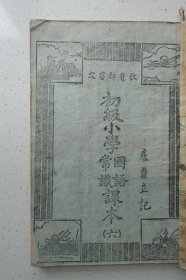 教育部審定
初級小學國語常識課本(六)
立記